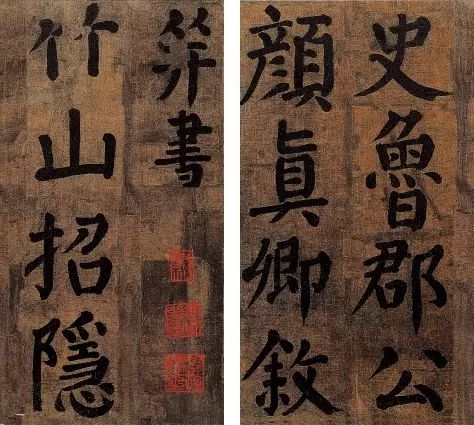 史魯郡公
顔眞卿敘
并書
竹山招隱